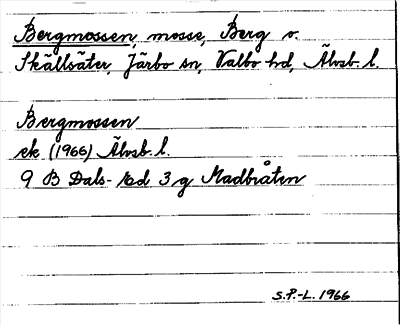 Bergmossen, mosse, Berg o.
Skällsäter, Järbo sn, Valbo hd, Älvsb. l.
Bergmossen
ek (1966) Älvsb. l.
9 B Dals- Ed 3 g Madbråten
S.P.-L. 1966